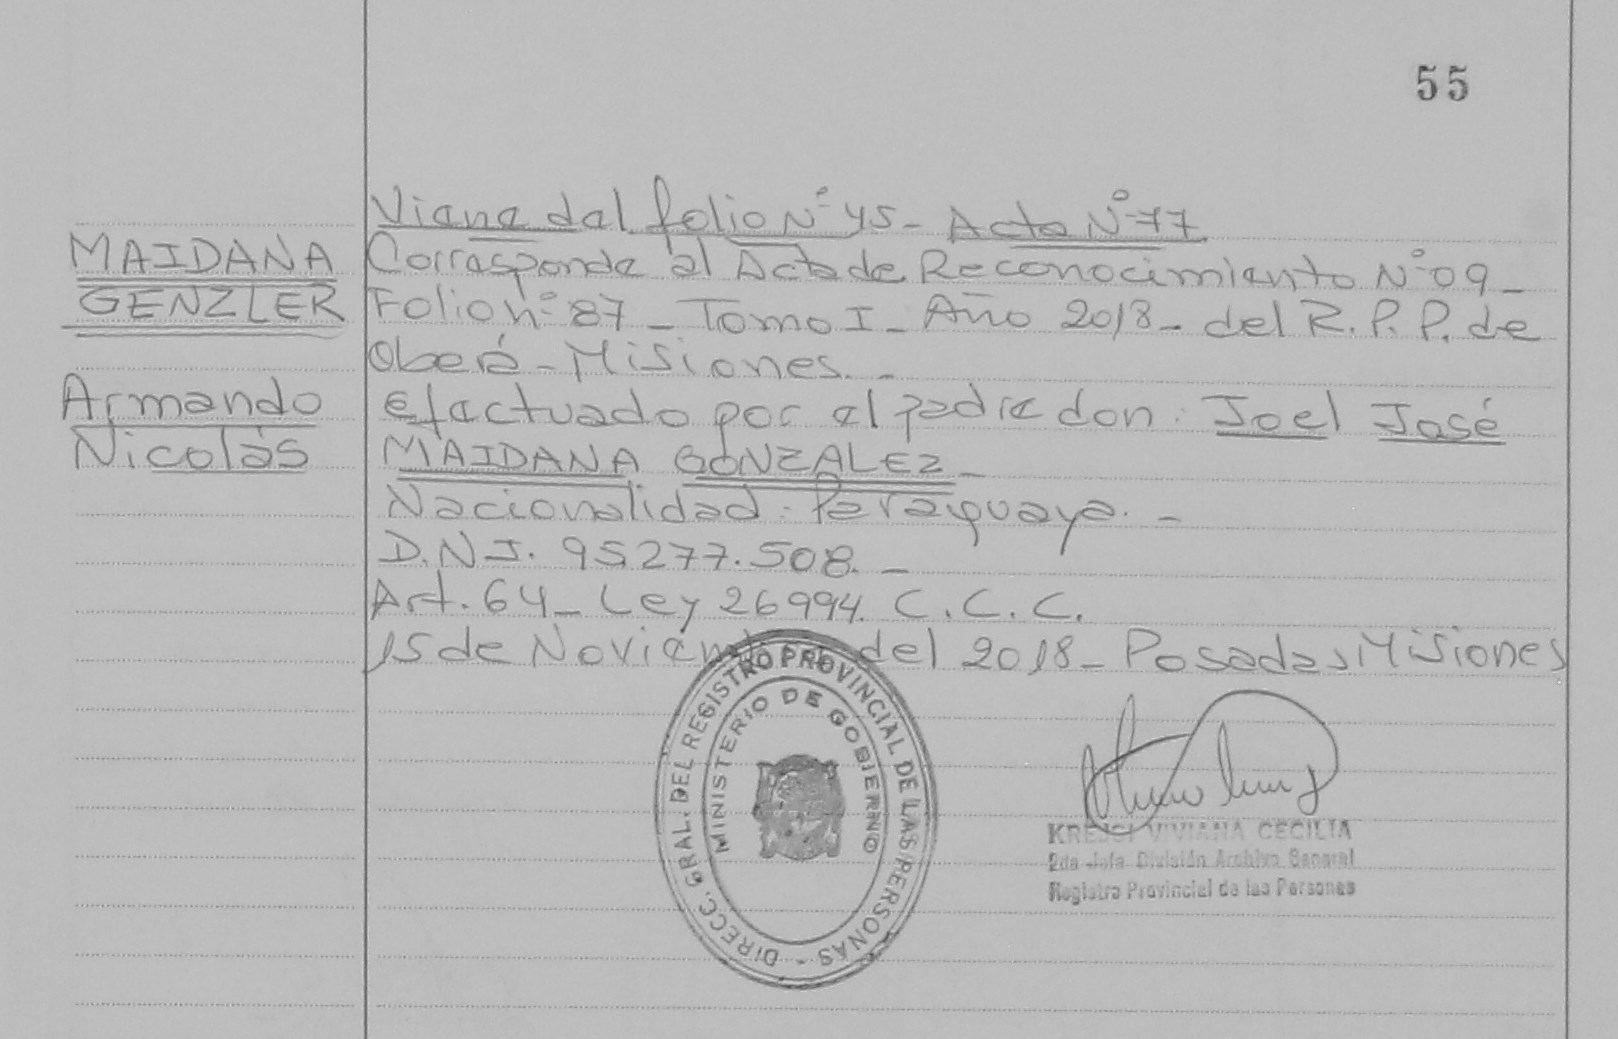 55
Viene del folio N° 45 - Acta N° 77
MAIDANA
GENZLER
Armando
Nicolás
Corresponde al Acta de Reconocimiento N° 09 -
Folio n° 87 - Tomo I - Año 2018 - del R. P. P. de
Oberá - Misiones. -
efectuado por el padre don: Joel José
MAIDANA GONZALEZ -
Nacionalidad: Paraguaya. -
D.N.I. 95277.508. -
Art. 64 - Ley 26994. C. C. C.
15 de Noviembre del 2018 - Posadas Misiones
DIRECC. GRAL. DEL REGISTRO PROVINCIAL DE LAS PERSONAS -
MINISTERIO DE GOBIERNO
KREJCI VIVIANA CECILIA
2da Jefa División Archivo General
Registro Provincial de las Personas